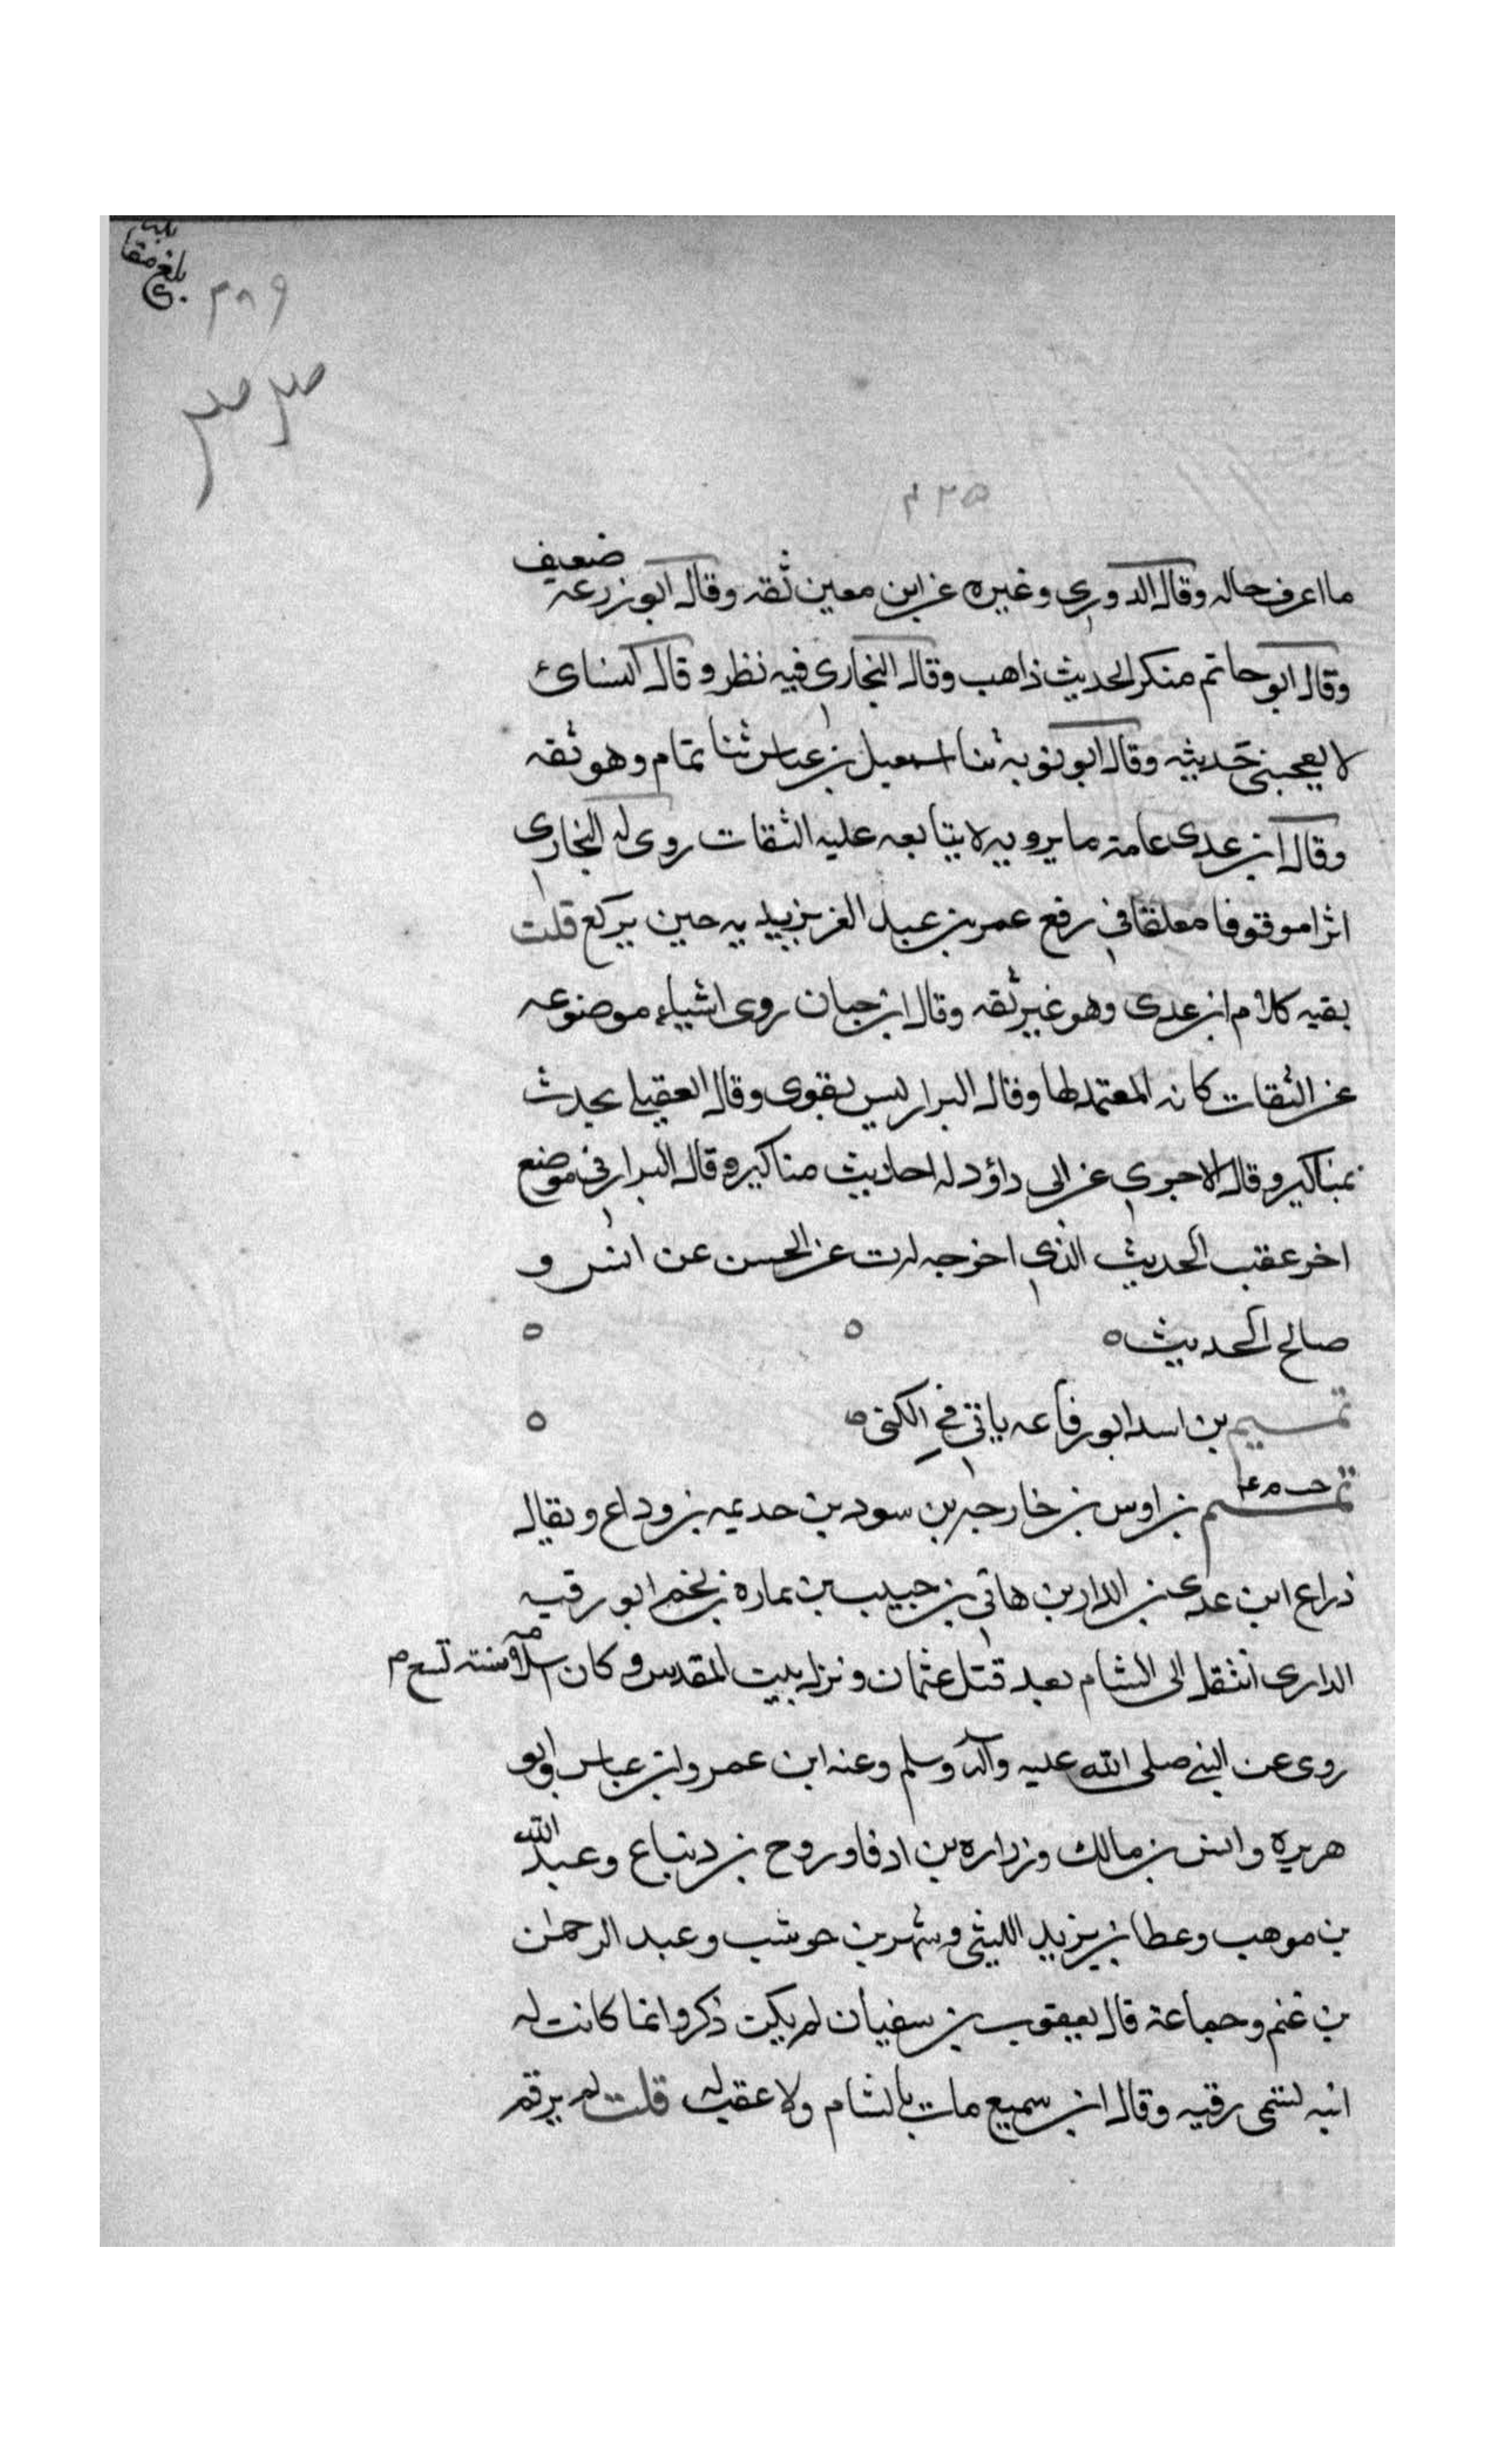 بلغ مقابلة
٣٨٩
٤٢٥
ما اعرف حاله وقال الدوري وغيره عن ابن معين ثقه وقال ابو زرعه ضعيف
وقال ابو حاتم منكر الحديث ذاهب وقال البخارى فيه نظر وقال النسائ
لا يعجبنى حديثه وقال ابو توبه ثنا اسمعيل بن عياش ثنا تمام وهو ثقه
وقال ابن عدى عامة ما يرويه لا يتابعه عليه الثقات روى له البخارى
اثرا موقوفا معلقا في رفع عمر بن عبد العزيز يديه حين يركع قلت
بقيه كلام ابن عدى وهو غير ثقه وقال ابن حبان روى اشياء موضوعه
عن الثقات كانه المعتمد لها وقال البزار ليس بقوى وقال العقيلي يحدث
بمناكير وقال الاجري عن ابى داؤد له احاديث مناكير وقال البزار في موضع
اخر عقب الحديث الذي اخرجه له ت عن الحسن عن انس و
صالح الحديث ٥ ٥ ٥
تميم بن اسد ابو رفاعه ياتي في الكنى ٥ ٥
تميم بن اوس بن خارجه بن سود بن حديمه بن وداع ويقال
ذراع ابن عدى بن الدار بن هاني بن حبيب بن نماره بن لخم ابو رقيه
الدارى انتقل الى الشام بعد قتل عثمان ونزل بيت المقدس وكان اسلامه سنة تسع م
روى عن النبي صلى الله عليه وآله وسلم وعنه ابن عمر وابن عباس وابو
هريره وانس بن مالك وزراره بن ادفا وروح بن زنباع وعبد الله
بن موهب وعطا بن يزيد الليثي وشهر بن حوشب وعبد الرحمن
بن غنم وجماعة قال يعقوب بن سفيان لم يكن ذكر وانما كانت له
ابنه تسمى رقيه وقال ابن سميع مات بالشام ولا عقب له قلت لم يرقم